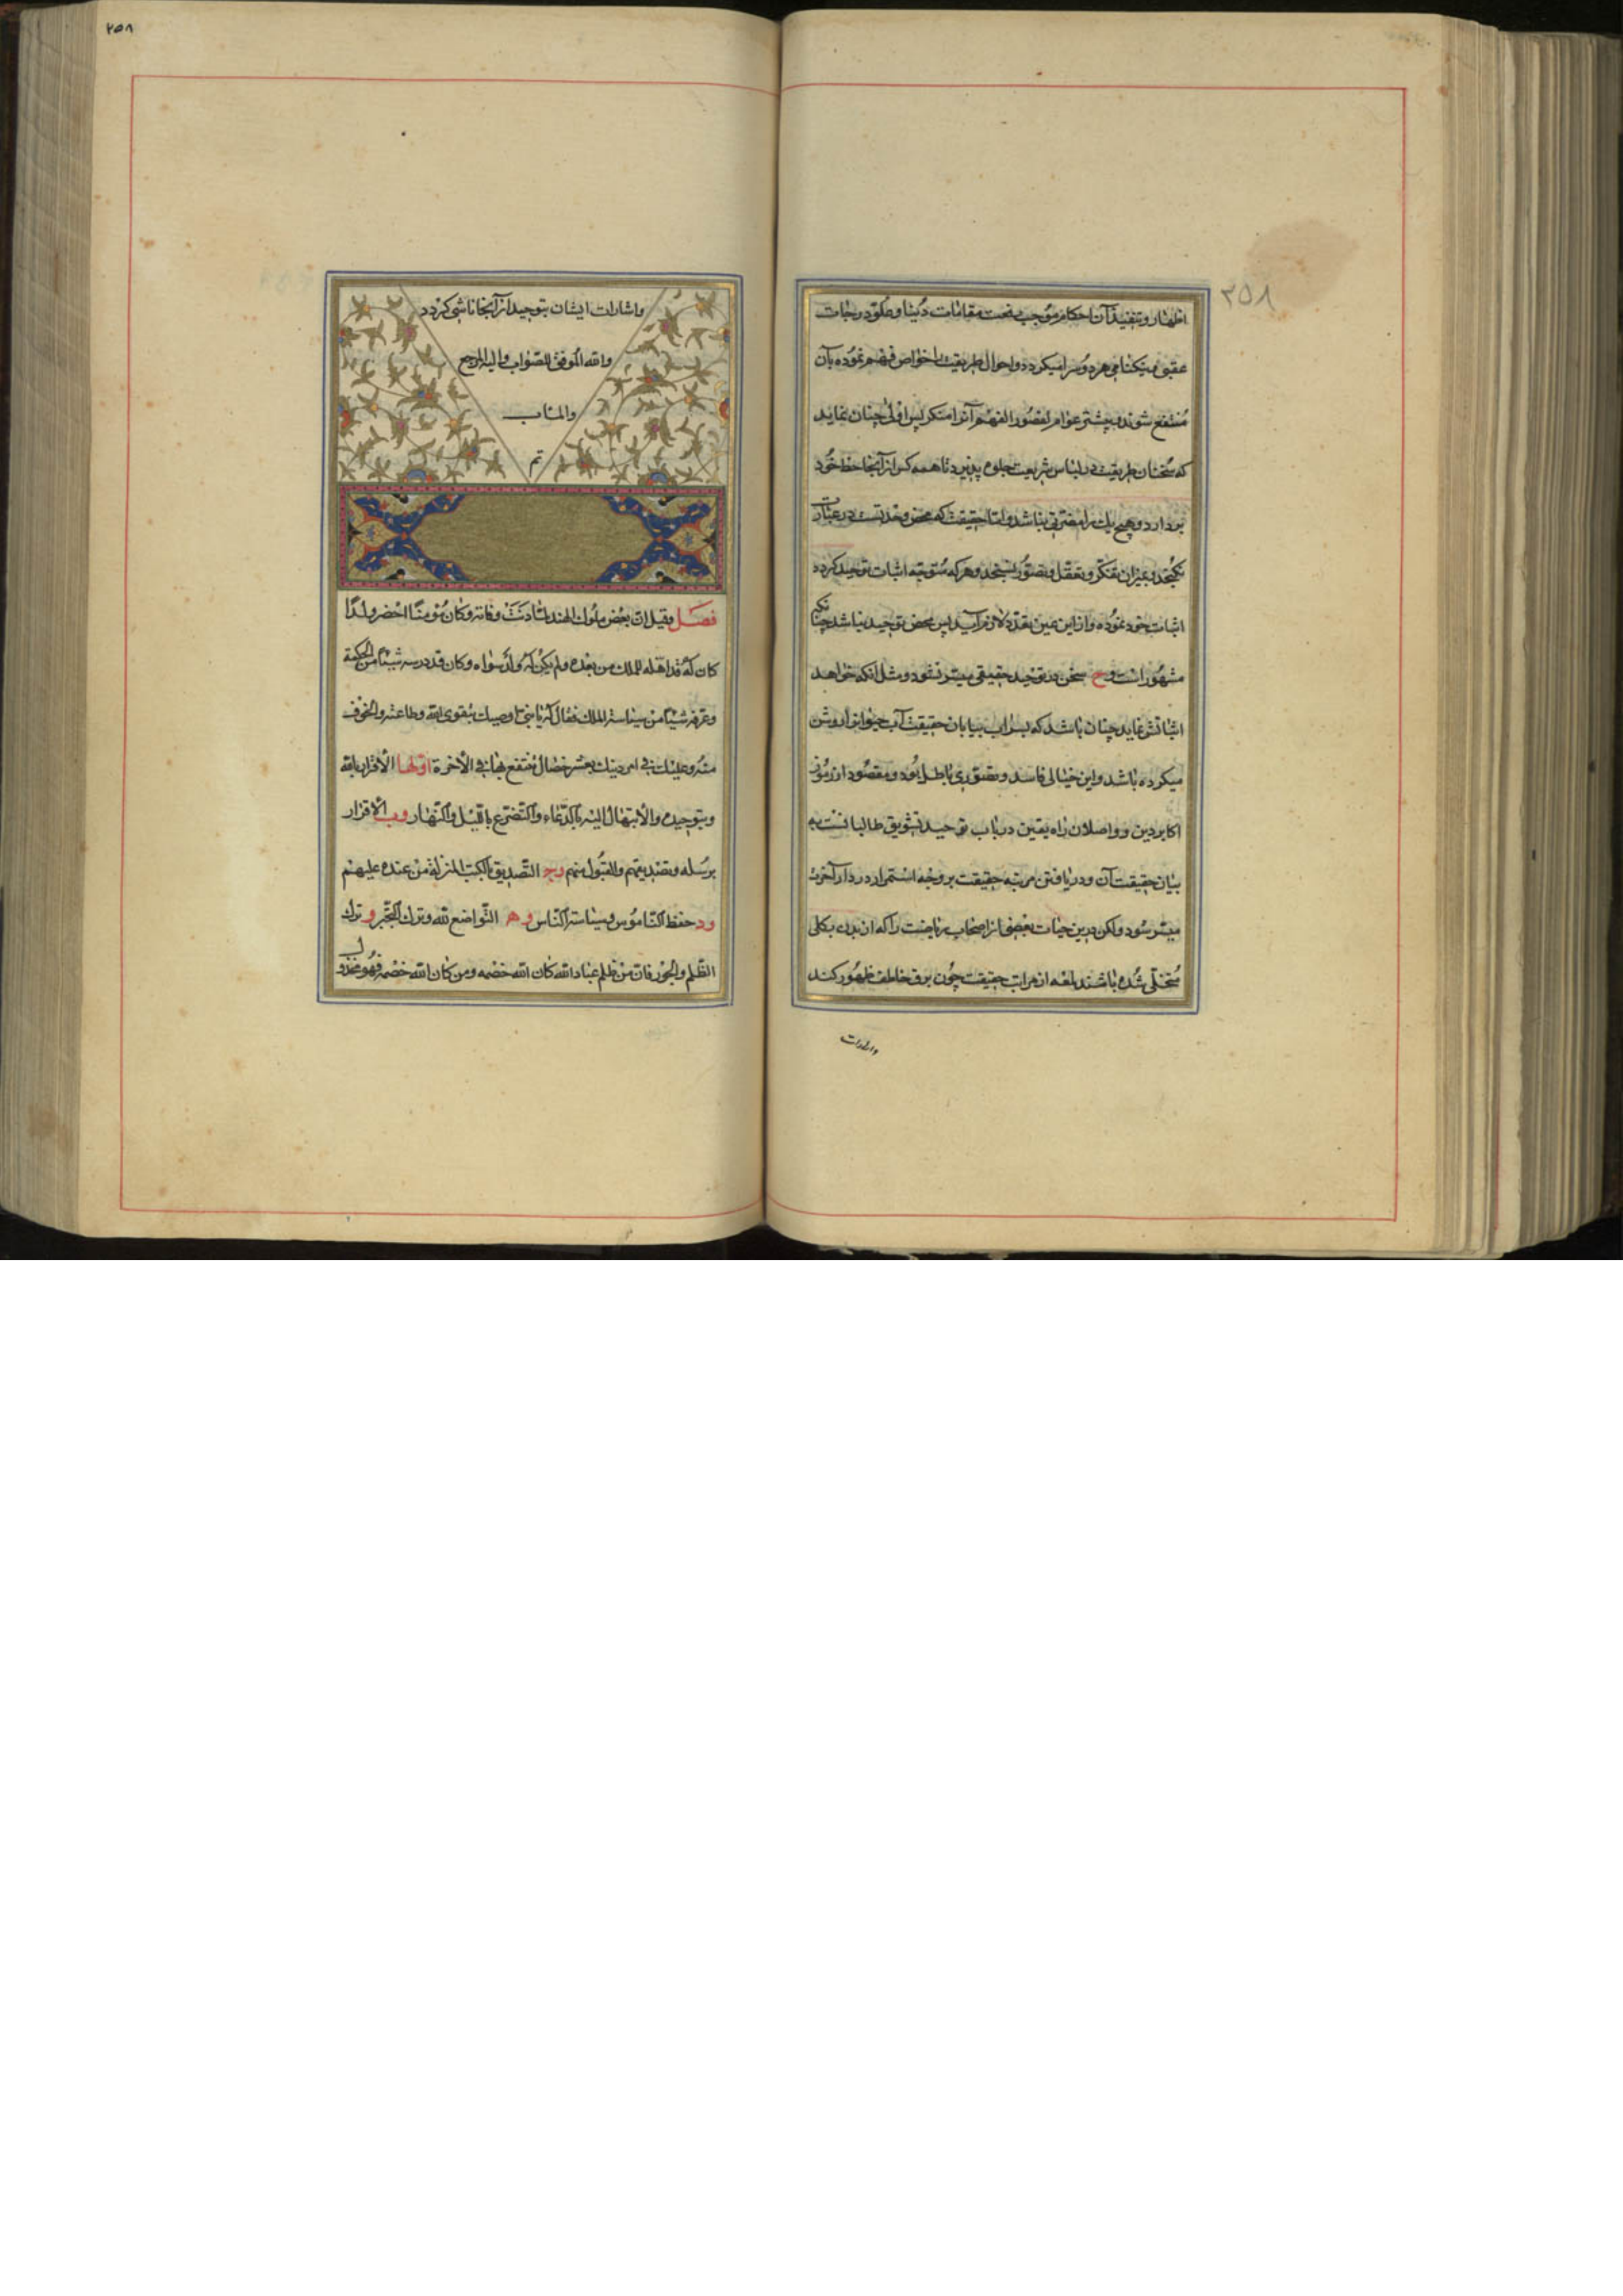 ٢٥٨
اظهار و تنفیذ آن احکام موجب رفعت مقامات دنیا و علو درجات
عقبی و نیکنامی هر دو سرا میکردد و احوال طریقت را خواص فهم نموده بآن
منتفع شوند و بیشتر عوام لقصور الفهم آنرا منکر پس اولی چنان نماید
که سخنان طریقت در لباس شریعت جلوه پذیرد تا همه کس از آنجا حظ خود
بردارد و هیچ یک را مضرتی نباشد و اما حقیقت که محض وحدتست در عبارت
نکنجد و بمیزان تفکر و تعقل و تصور نسنجد و هر که متوجه اثبات توحید کردد
اثبات خود نموده و از این عین تعدد لازم آید پس محض توحید نباشد چنانکه
مشهور است و ح سخن در توحید حقیقی میسر نشود و مثل انکه خواهد
اثباتش نماید چنان باشد که بسراب بیابان حقیقت آب حیوان را روشن
میکرده باشد و این خیالی فاسد و تصوری باطل بود و مقصود از رموز
اکابر دین و واصلان راه یقین در باب توحید تشویق طالبانست به
بیان حقیقت آن و دریافتن مرتبه حقیقت بر وجه استمرار در دار آخرت
میسر شود و لکن درین حیات بعضی از اصحاب ریاضت را که از بدن بکلی
متخلی شده باشند لمعه از مراتب حقیقت چون برق خاطف ظهور کند
واشارات
٢٥٨
واشارات ایشان بتوحید از آنجا ناشی کردد
والله الموفق للصواب والیه المرجع
والمئاب
تم
فصل وقیل ان بعض ملوک الهند لما دنت وفاته وکان مؤمنا احضر ولدا
کان له قد اهله للملک من بعده ولم یکن له ولد سواه وکان قد درسه شیئا من الحکمة
وعرفه شیئا من سیاسة الملک فقال له یا بنی اوصیک بتقوی الله وطاعته والخوف
منه وعلیک فی امر دینک بعشر خصال تنتفع بها فی الآخرة اولها الاقرار بالله
وبتوحیده والابتهال الیه بالدعاء والتضرع باللیل والنهار وب الاقرار
برسله وتصدیقهم والقبول منهم وج التصدیق بالکتب المنزلة من عنده علیهم
ود حفظ الناموس وسیاسة الناس وه التواضع لله وترک التجبر و ترک
الظلم والجور فان من ظلم عباد الله کان الله خصمه ومن کان الله خصمه فهو مخذول